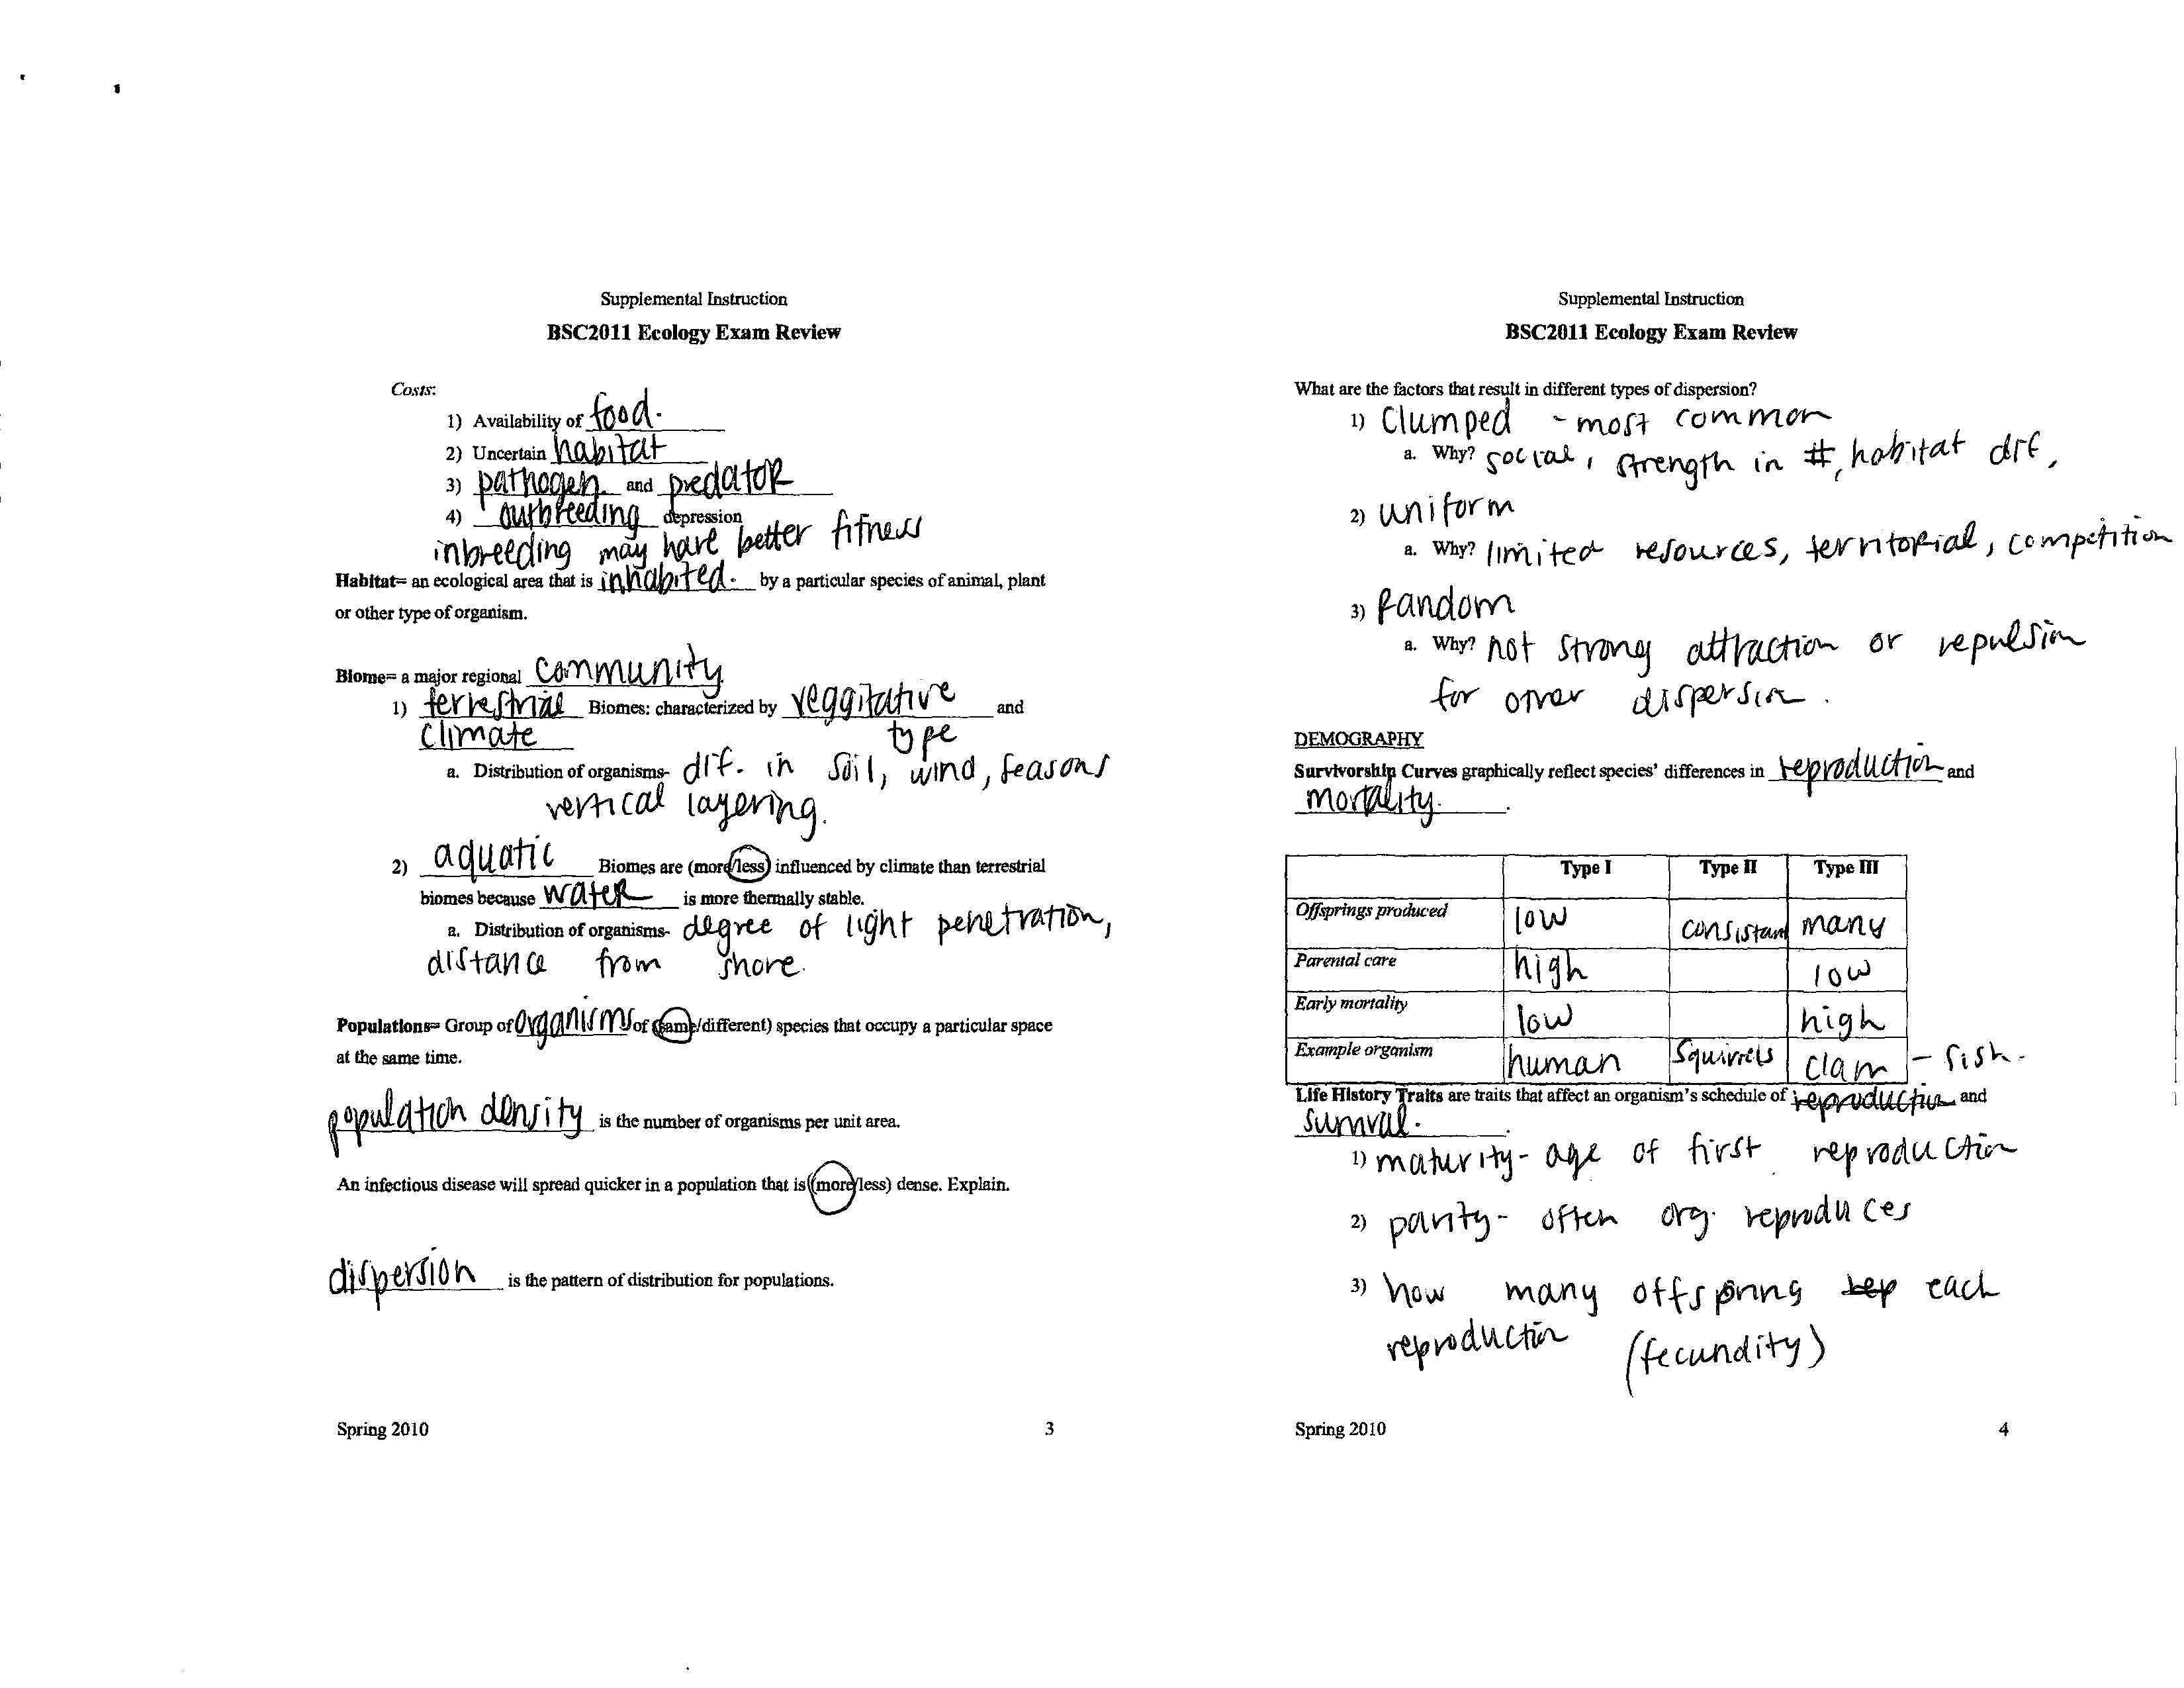 Supplemental Instruction
BSC2011 Ecology Exam Review
Costs:
1) Availability of food.
2) Uncertain habitat
3) pathogen and predator
4) outbreeding depression
inbreeding may have better fitness
Habitat= an ecological area that is inhabited. by a particular species of animal, plant
or other type of organism.
Biome= a major regional community.
1) terrestrial Biomes: characterized by veggitative and
climate type
a. Distribution of organisms- dif. in soil, wind, seasons
vertical layering.
2) aquatic Biomes are (more/less) influenced by climate than terrestrial
biomes because water is more thermally stable.
a. Distribution of organisms- degree of light penetration,
distance from shore.
Populations= Group of organisms of (same/different) species that occupy a particular space
at the same time.
population density is the number of organisms per unit area.
An infectious disease will spread quicker in a population that is (more/less) dense. Explain.
dispersion is the pattern of distribution for populations.
Spring 2010 3
Supplemental Instruction
BSC2011 Ecology Exam Review
What are the factors that result in different types of dispersion?
1) Clumped - most common
a. Why? social, strength in #, habitat dif,
2) uniform
a. Why? limited resources, territorial, competition
3) Random
a. Why? not strong attraction or repulsion
for other dispersion.
DEMOGRAPHY
Survivorship Curves graphically reflect species' differences in reproduction and
mortality. .
Type I Type II Type III
Offsprings produced low consistant many
Parental care high low
Early mortality low high
Example organism human Squirrels clam - fish.
Life History Traits are traits that affect an organism's schedule of reproduction and
survival. .
1) maturity- age of first reproduction
2) parity- often org. reproduces
3) how many offspring rep each
reproduction (fecundity)
Spring 2010 4